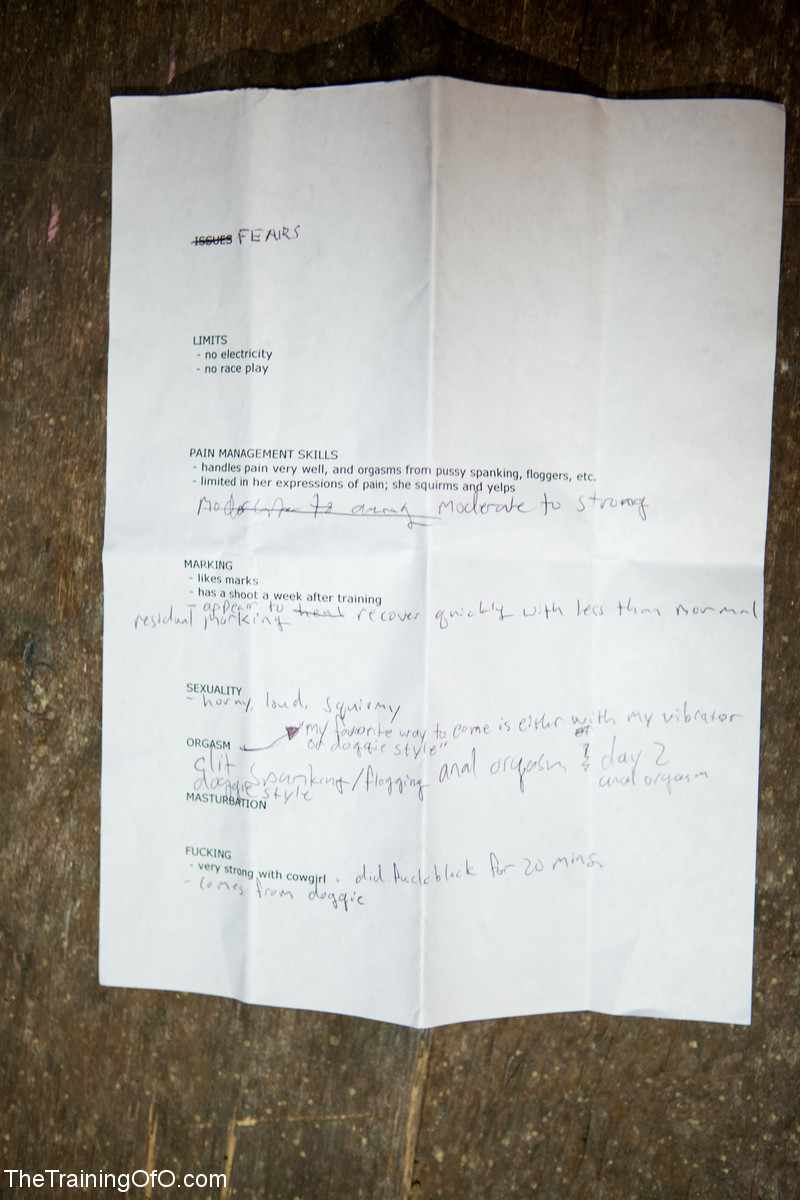 ISSUES FEARS
LIMITS
- no electricity
- no race play
PAIN MANAGEMENT SKILLS
- handles pain very well, and orgasms from pussy spanking, floggers, etc.
- limited in her expressions of pain; she squirms and yelps
Moderate to strong
MARKING
- likes marks
- has a shoot a week after training
- appear to recover quickly with less than normal
residual marking
SEXUALITY
- horny, loud, squirmy
"my favorite way to come is either with my vibrator
or doggie style"
ORGASM
clit spanking/flogging anal orgasm day 2
doggie style anal orgasm
MASTURBATION
FUCKING
- very strong with cowgirl. did fuckblock for 20 mins.
- comes from doggie
TheTrainingOfO.com